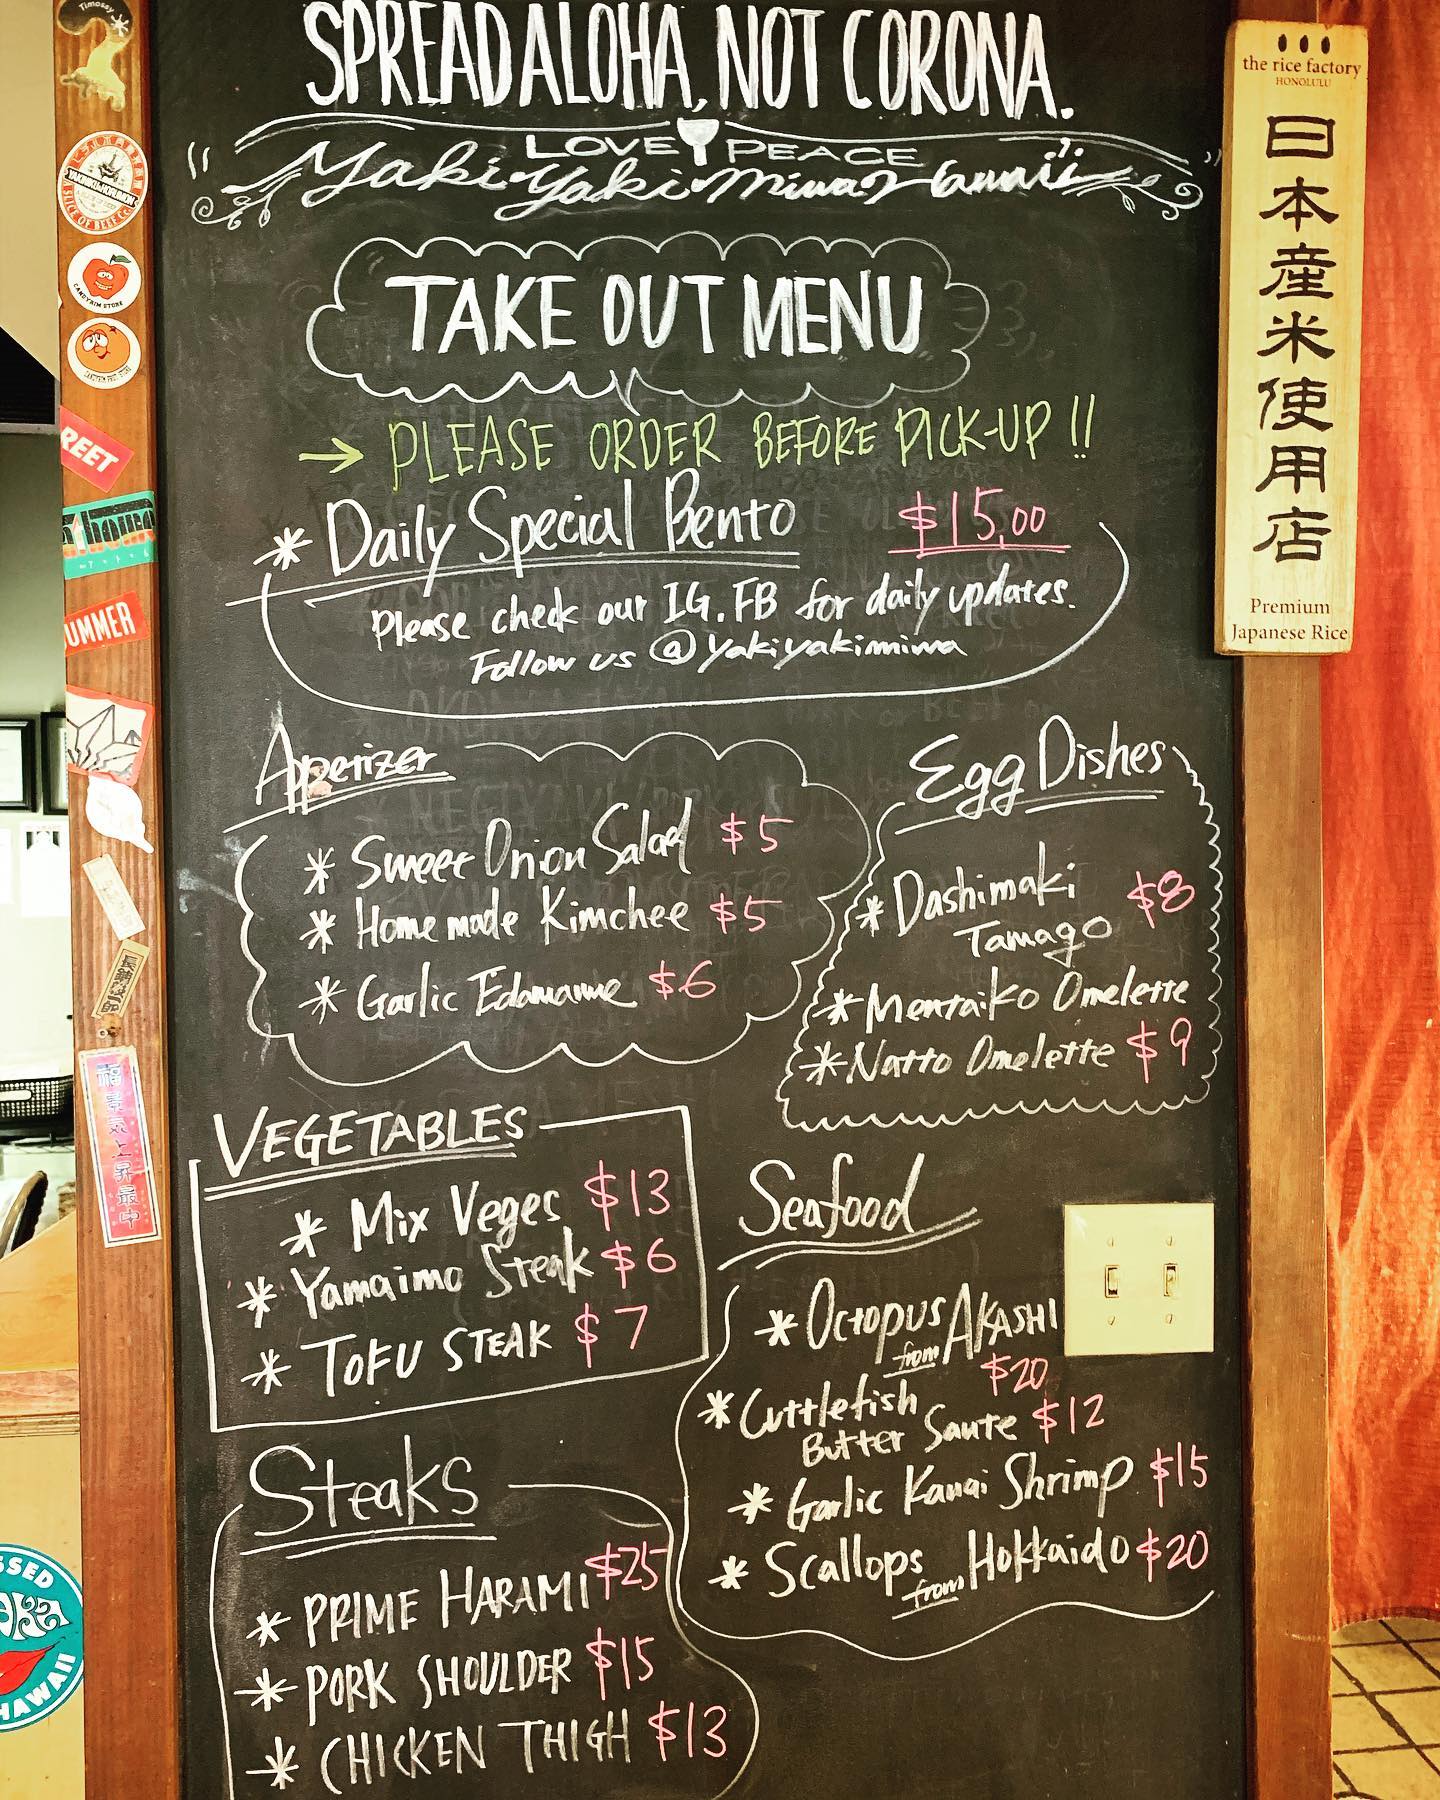 SPREAD ALOHA, NOT CORONA.
LOVE PEACE
Yaki Yaki Miwa Hawaii
TAKE OUT MENU
→ PLEASE ORDER BEFORE PICK-UP !!
* Daily Special Bento $15,00
Please check our IG.FB for daily updates.
Follow us @yakiyakimiwa
Appetizer
* Sweet Onion Salad $5
* Home made Kimchee $5
* Garlic Edamame $6
Egg Dishes
* Dashimaki
Tamago $8
* Mentaiko Omelette
* Natto Omelette $9
VEGETABLES
* Mix Veges $13
* Yamaimo Steak $6
* TOFU STEAK $7
Seafood
* Octopus from AKASHI
$20
* Cuttlefish
Butter Saute $12
* Garlic Kauai Shrimp $15
* Scallops from Hokkaido $20
Steaks
* PRIME HARAMI $25
* PORK SHOULDER $15
* CHICKEN THIGH $13
the rice factory
HONOLULU
日本産米使用店
Premium
Japanese Rice
Timossy
SLICE OF BEEF Co.
CANDYRIM STORE
REET
UMMER
景気上昇最中
HAWAII